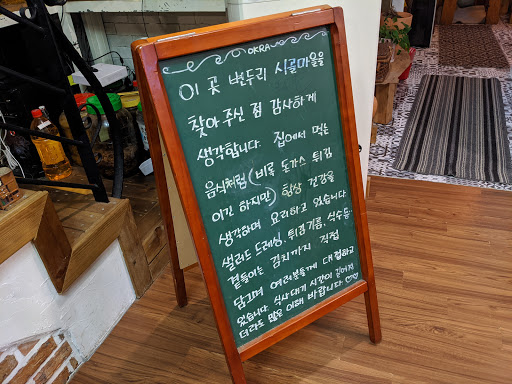 OKRA
이 곳 변두리 시골마을을
찾아 주신 점 감사하게
생각합니다. 집에서 먹는
음식처럼 (비록 돈까스 튀김
이긴 하지만) 항상 건강을
생각하며 요리하고 있습니다.
샐러드 드레싱, 튀김기름, 식수등.
곁들이는 김치까지 직접
담그며 여러분들께 대접하고
있습니다. 식사대기 시간이 길어져
더라도 많은 이해 바랍니다 ♡♡